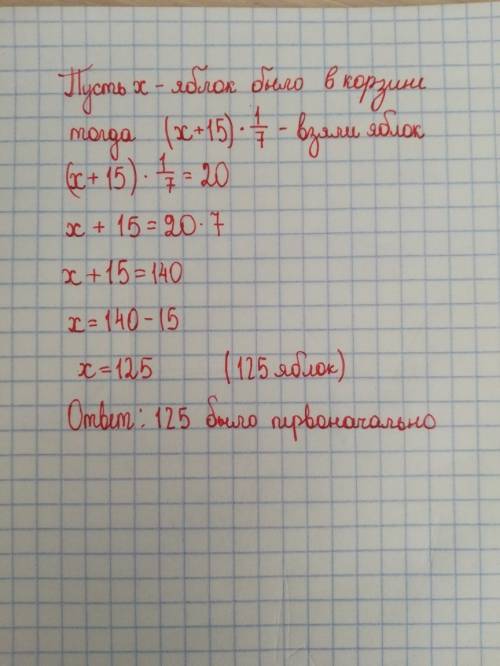 Пусть x - яблок было в корзине
тогда (x+15) · 1/7 - взяли яблок
(x+15) · 1/7 = 20
x + 15 = 20 · 7
x + 15 = 140
x = 140 - 15
x = 125 (125 яблок)
Ответ: 125 было первоначально